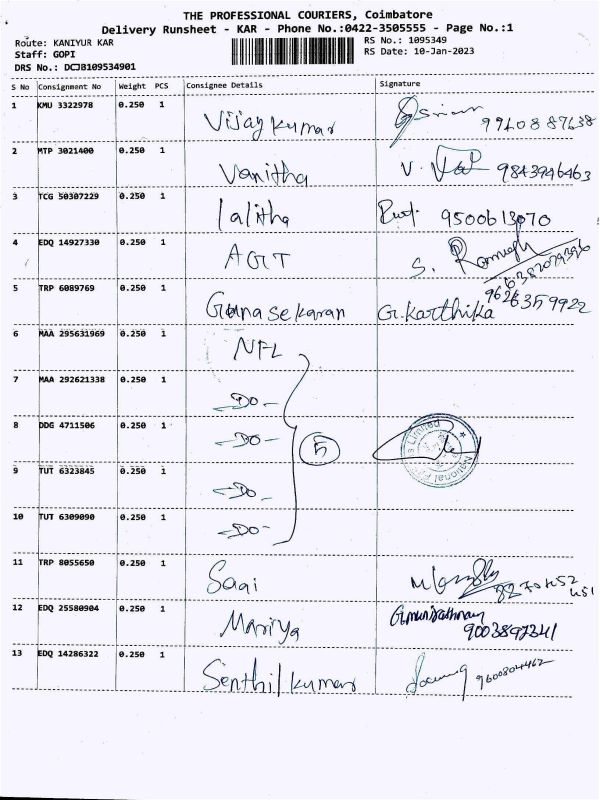 THE PROFESSIONAL COURIERS, Coimbatore
Delivery Runsheet - KAR - Phone No.:0422-3505555 - Page No.:1
Route: KANIYUR KAR
RS No.: 1095349
Staff: GOPI
RS Date: 10-Jan-2023
DRS No.: DCJB109534901
S No Consignment No Weight PCS Consignee Details Signature
1 KMU 3322978 0.250 1 Vijay kumar
2 MTP 3021400 0.250 1 Vanitha V. 9843946463
3 TCG 50307229 0.250 1 Lalitha 9500613070
4 EDQ 14927330 0.250 1 AGT S. Ramesh
5 TRP 6089769 0.250 1 Gunasekaran G.Karthika 9626359922
6 MAA 295631969 0.250 1 NFL
7 MAA 292621338 0.250 1 -DO-
8 DDG 4711506 0.250 1 -DO- 5
9 TUT 6323845 0.250 1 -DO-
10 TUT 6309090 0.250 1 -DO-
11 TRP 8055650 0.250 1
12 EDQ 25580904 0.250 1 Mariya 9003897341
13 EDQ 14286322 0.250 1 Senthil kumar 9600804462